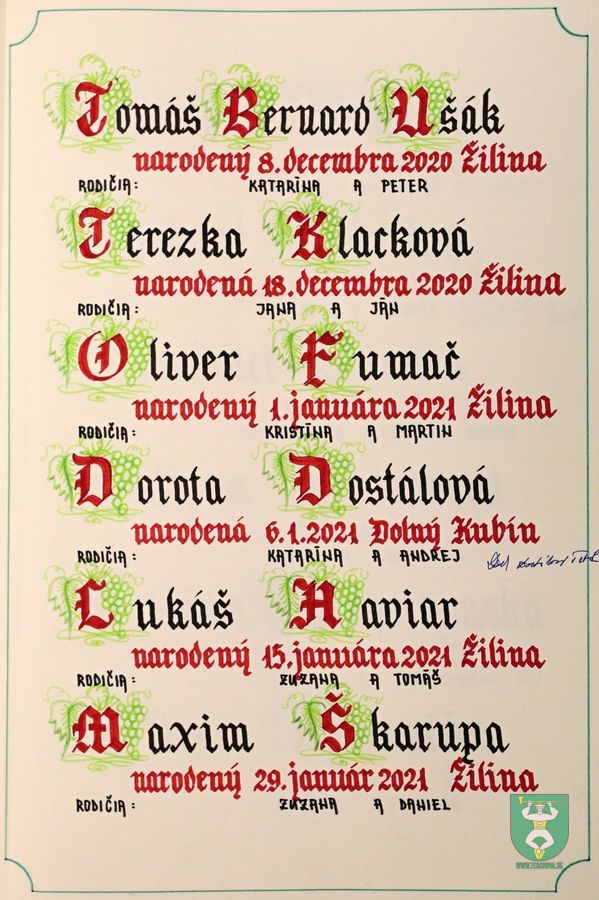 Tomáš Bernard Ušák
narodený 8. decembra 2020 Žilina
RODIČIA: KATARÍNA A PETER
Terezka Klacková
narodená 18. decembra 2020 Žilina
RODIČIA: JANA A JÁN
Oliver Fumač
narodený 1. januára 2021 Žilina
RODIČIA: KRISTÍNA A MARTIN
Dorota Dostálová
narodená 6.1.2021 Dolný Kubín
RODIČIA: KATARÍNA A ANDREJ
Lukáš Haviar
narodený 15. januára 2021 Žilina
RODIČIA: ZUZANA A TOMÁŠ
Maxim Škarupa
narodený 29. január 2021 Žilina
RODIČIA: ZUZANA A DANIEL
WWW.TERCHOVA.SK